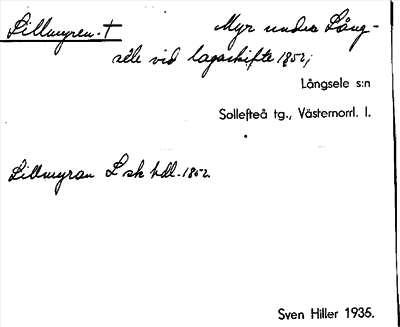 Lillmyren. † Myr under Lång-
sele vid lagaskifte 1852;
Långsele s:n
Sollefteå tg., Västernorrl. l.
Lillmyran L sk hdl. 1852.
Sven Hiller 1935.